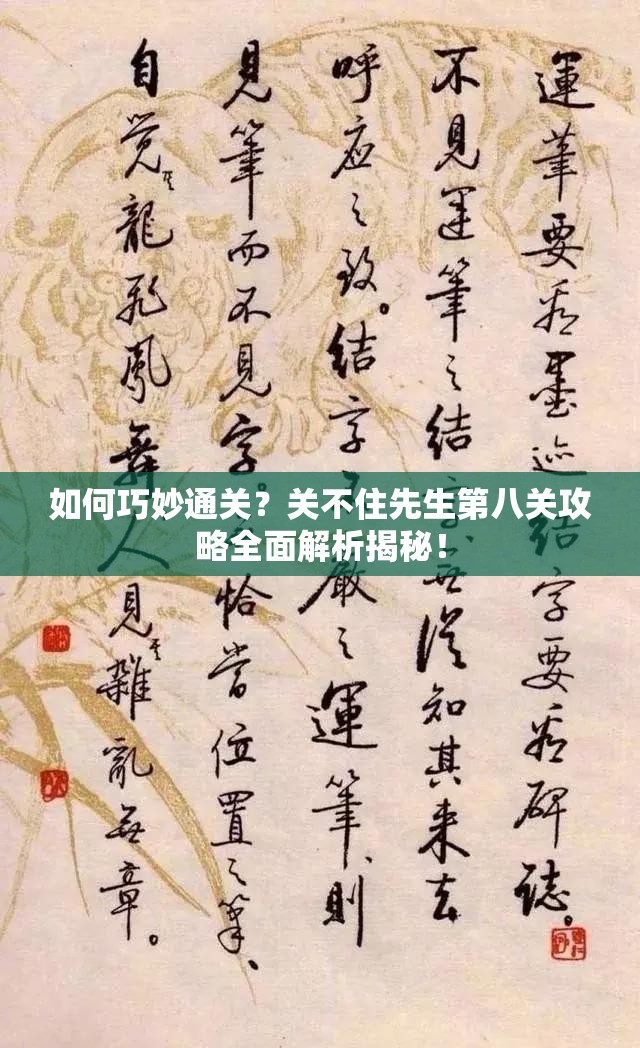 運筆要看墨迹结字要看碑誌。
不見運筆之结字無從知其来去
呼应之致。结字嚴之運筆、則
見筆而不見字。恰當位置之筆、
自觉其龍飛鳳舞人見其雜亂無章。
如何巧妙通关？关不住先生第八关攻
略全面解析揭秘！